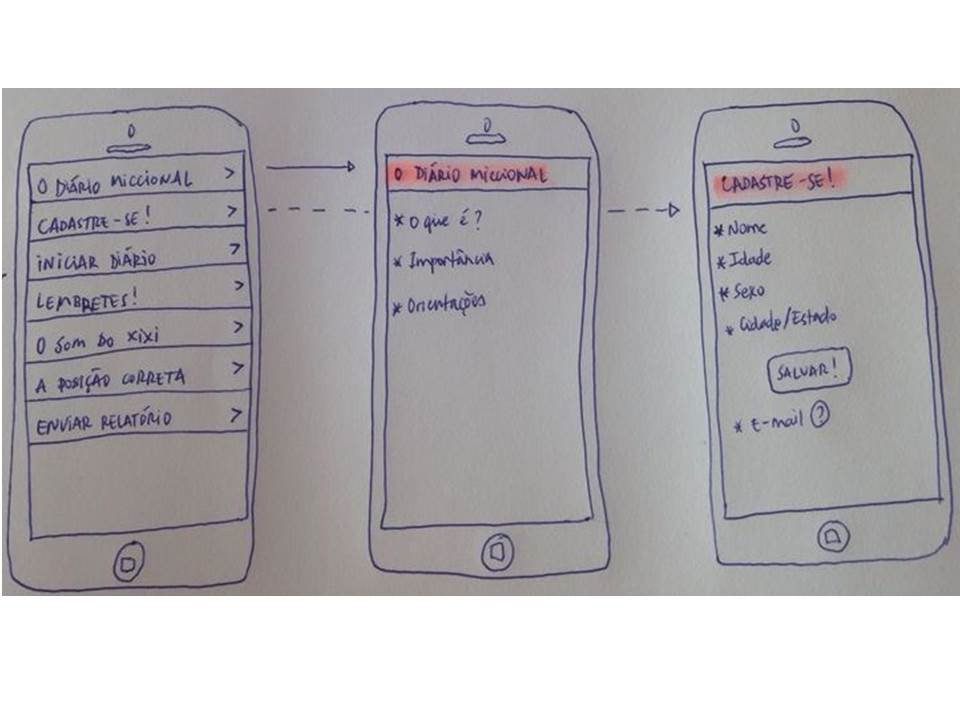 O DIÁRIO MICCIONAL >
CADASTRE-SE! >
INICIAR DIÁRIO >
LEMBRETES! >
O SOM DO XIXI >
A POSIÇÃO CORRETA >
ENVIAR RELATÓRIO >
O DIÁRIO MICCIONAL
* O que é?
* Importância
* Orientações
CADASTRE-SE!
* Nome
* Idade
* Sexo
* Cidade/Estado
SALVAR!
* E-mail ?